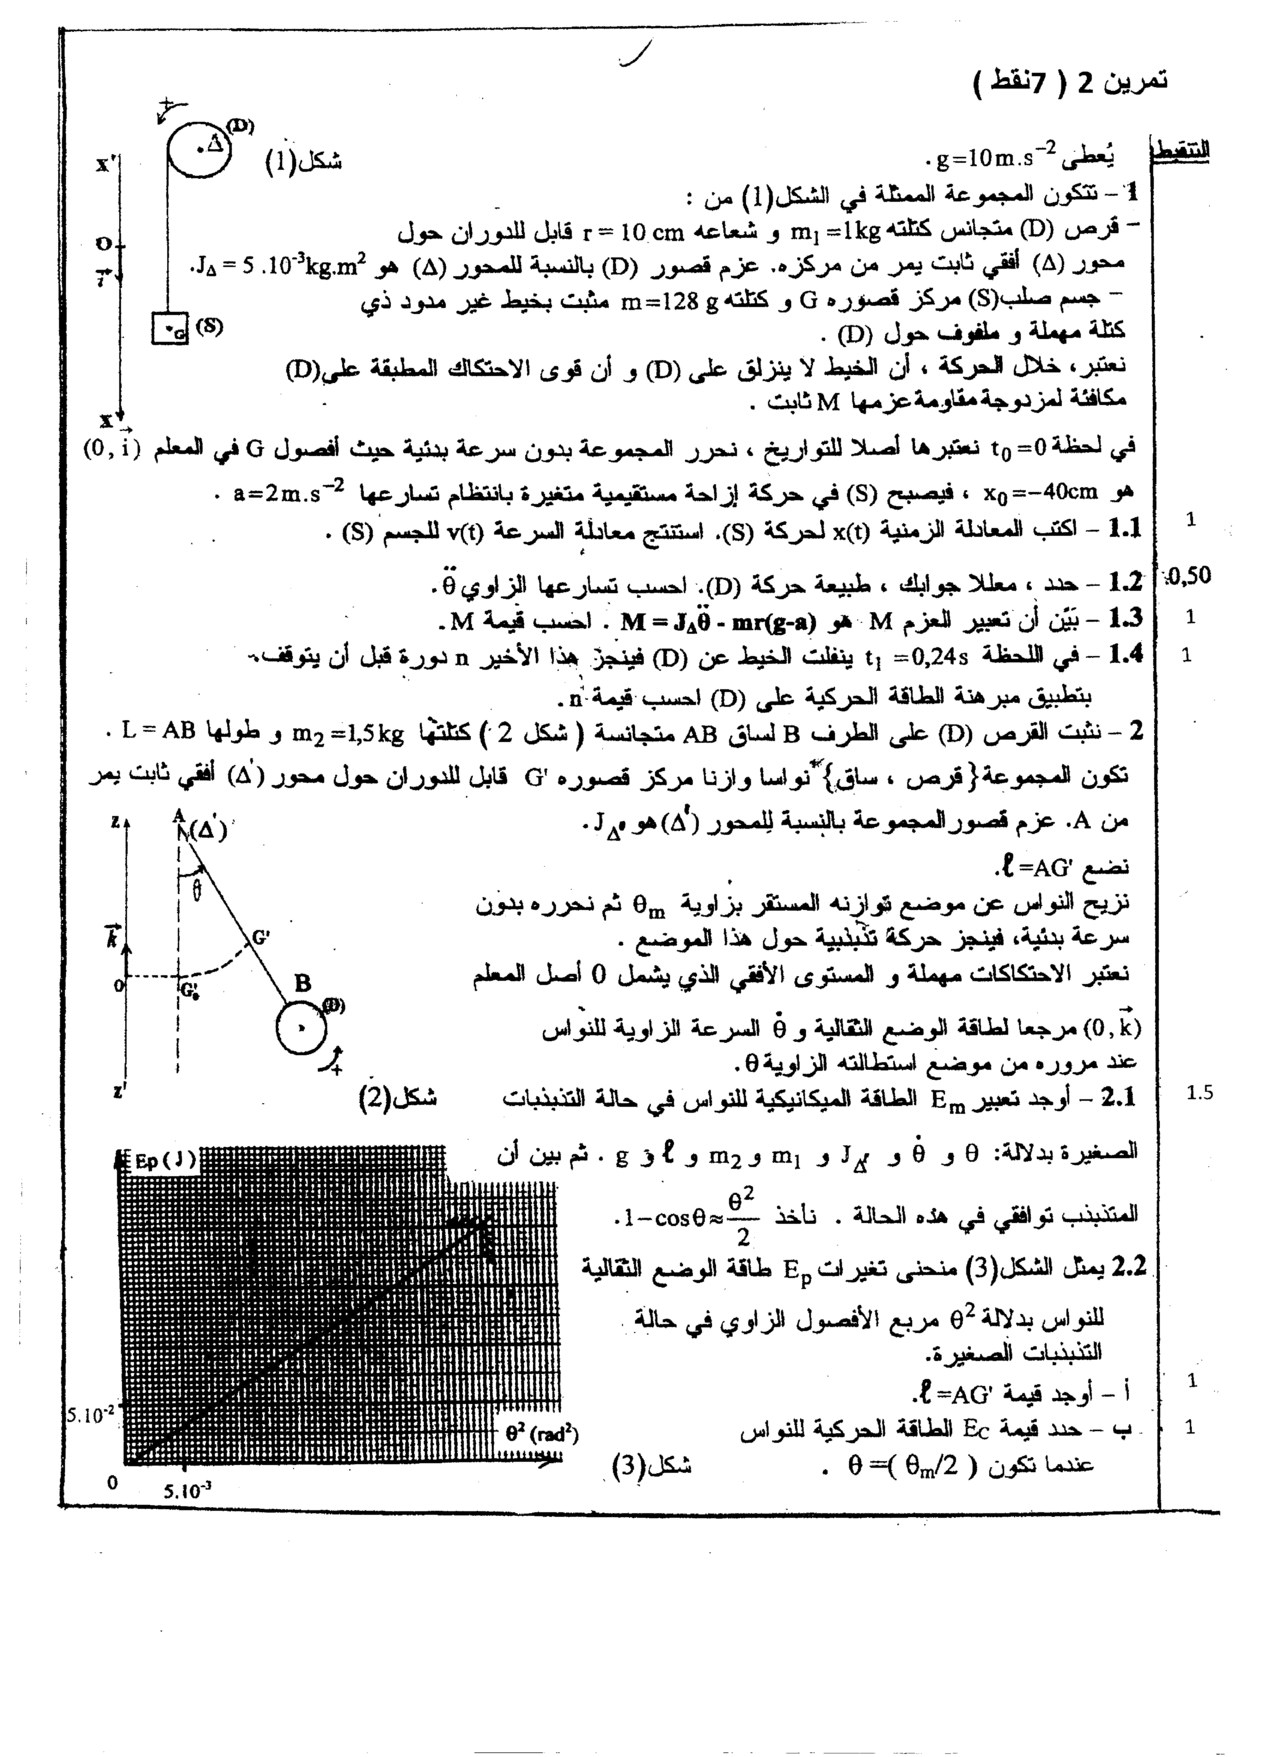 تمرين 2 ( 7نقط )
التنقيط
يُعطى g=10m.s⁻² .
1 – تتكون المجموعة الممثلة في الشكل(1) من :
– قرص (D) متجانس كتلته m₁=1kg و شعاعه r = 10 cm قابل للدوران حول
محور (Δ) أفقي ثابت يمر من مركزه. عزم قصور (D) بالنسبة للمحور (Δ) هو J_Δ = 5 .10⁻³kg.m².
– جسم صلب(S) مركز قصوره G و كتلته m=128 g مثبت بخيط غير مدود ذي
كتلة مهملة و ملفوف حول (D) .
نعتبر، خلال الحركة ، أن الخيط لا ينزلق على (D) و أن قوى الاحتكاك المطبقة على(D)
مكافئة لمزدوجة مقاومة عزمها M ثابت .
(D)
Δ
+
شكل(1)
x'
O
i
G
(S)
x
في لحظة t₀=0 نعتبرها أصلا للتواريخ ، نحرر المجموعة بدون سرعة بدئية حيث أفصول G في المعلم (0, i)
هو x₀=−40cm ، فيصبح (S) في حركة إزاحة مستقيمية متغيرة بانتظام تسارعها a=2m.s⁻² .
1.1 – اكتب المعادلة الزمنية x(t) لحركة (S). استنتج معادلة السرعة v(t) للجسم (S) .
1
1.2 – حدد ، معللا جوابك ، طبيعة حركة (D). احسب تسارعها الزاوي θ̈.
0,50
1.3 – بَيِّن أن تعبير العزم M هو M = J_Δθ̈ - mr(g-a) . احسب قيمة M.
1
1.4 – في اللحظة t₁=0,24s ينفلت الخيط عن (D) فينجز هذا الأخير n دورة قبل أن يتوقف.
1
بتطبيق مبرهنة الطاقة الحركية على (D) احسب قيمة n.
2 – نثبت القرص (D) على الطرف B لساق AB متجانسة ( شكل 2 ) كتلتها m₂=1,5kg و طولها L = AB .
تكون المجموعة{قرص ، ساق} نواسا وازنا مركز قصوره G' قابل للدوران حول محور (Δ') أفقي ثابت يمر
من A. عزم قصور المجموعة بالنسبة للمحور (Δ')هو J_Δ'.
نضع ℓ=AG'.
نزيح النواس عن موضع توازنه المستقر بزاوية θm ثم نحرره بدون
سرعة بدئية، فينجز حركة تذبذبية حول هذا الموضع .
نعتبر الاحتكاكات مهملة و المستوى الأفقي الذي يشمل 0 أصل المعلم
(0, k) مرجعا لطاقة الوضع الثقالية و θ̇ السرعة الزاوية للنواس
عند مروره من موضع استطالته الزاوية θ.
z
A
(Δ')
θ
k
G'
0
G'₀
B
(D)
+
z'
شكل(2)
2.1 – أوجد تعبير Em الطاقة الميكانيكية للنواس في حالة التذبذبات
1.5
الصغيرة بدلالة: θ و θ̇ و J_Δ' و m₁ و m₂ و ℓ و g . ثم بين أن
المتذبذب توافقي في هذه الحالة . نأخذ 1−cosθ≈θ²/2.
2.2 يمثل الشكل(3) منحنى تغيرات Ep طاقة الوضع الثقالية
للنواس بدلالة θ² مربع الأفصول الزاوي في حالة
التذبذبات الصغيرة.
أ – أوجد قيمة ℓ=AG'.
1
ب – حدد قيمة Ec الطاقة الحركية للنواس
1
عندما تكون θ =( θm/2 ) .
Ep(J)
5.10⁻²
θ² (rad²)
0
5.10⁻³
شكل(3)